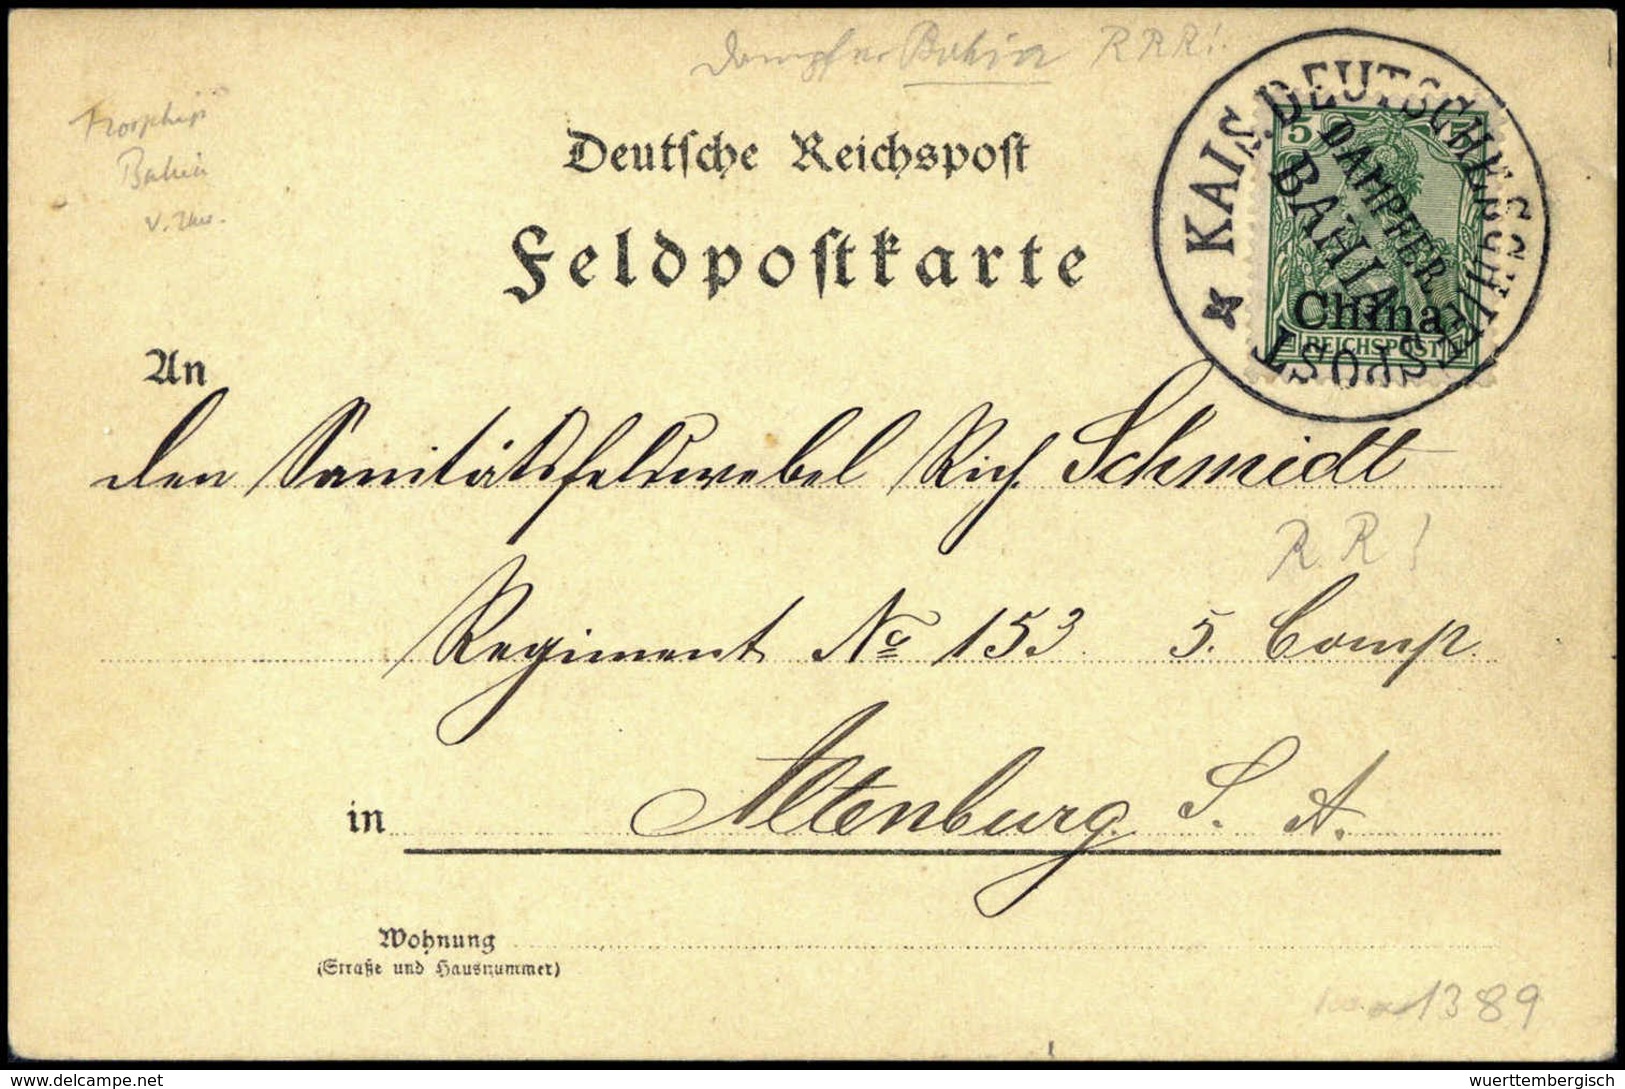 Dampfer Bahia RRR!
Troopship
Bahia
Deutsche Reichspost
Feldpostkarte
KAIS. DEUTSCHE SCHIFFSPOST
DAMPFER
BAHIA
5
China
REICHSPOST
An
den Sanitätsfeldwebel Rich. Schmidt
RR!
Regiment No 153 5. Comp.
in Altenburg S. A.
Wohnung
(Straße und Hausnummer)
1389
delcampe.net
wuerttembergisch